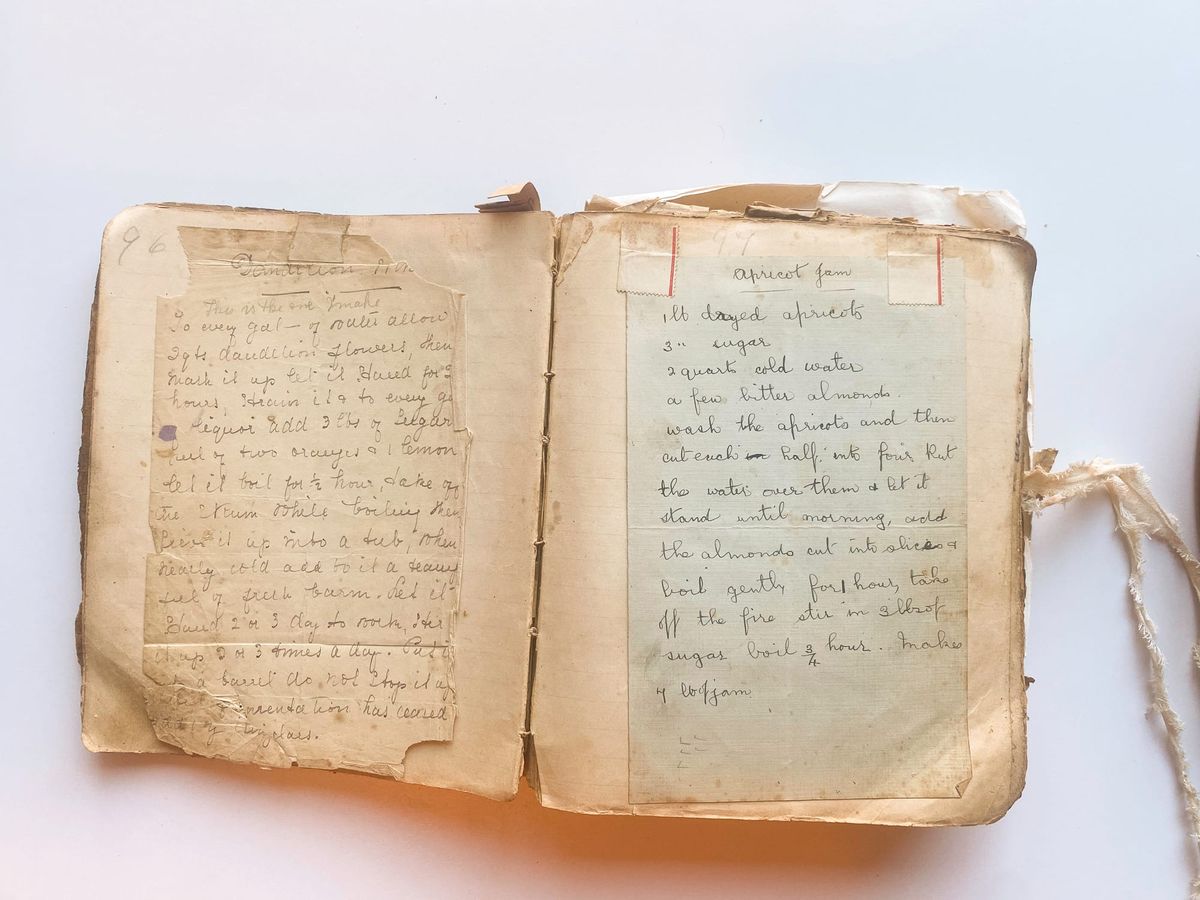 96
Dandelion
This is the one I make
To every gal- of water allow
2 qts dandelion flowers, then
mash it up let it Stand for
hours, Strain it & to every
liquor add 3 lbs of Sugar
peel of two oranges & 1 lemon
let it boil for ½ hour, take off
the Skum While boiling then
it up into a tub, When
nearly cold add to it a
of fresh barm. Let it
Stand 2 or 3 day to work, Stir
it up 2 or 3 times a day. Put it
a barrel do not Stop it
has ceased
97
Apricot Jam
1 lb drayed apricots
3 " sugar
2 quarts cold water
a few bitter almonds.
wash the apricots and then
cut each in half, into four Put
the water over them & let it
stand until morning, add
the almonds cut into slices &
boil gently for 1 hour, take
off the fire stir in 3 lbs of
sugar boil ¾ hour. Makes
lb of jam